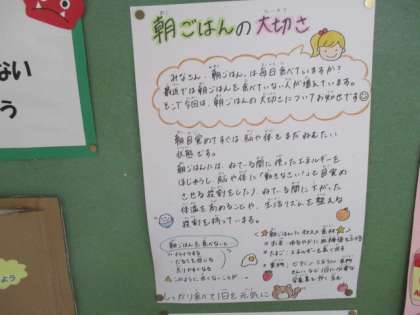 朝ごはんの大切さ
みなさん、朝ごはんは毎日食べていますか？
最近では朝ごはんを食べていない人が増えています。
そこで今回は、朝ごはんの大切さについてお知らせです
朝目覚めてすぐは脳や体もまだねむたい
状態です。
朝ごはんには、ねている間に使ったエネルギーを
ほじゅうし、脳や体に「動きなさい」と目覚め
させる役割をしたり、ねている間に下がった
体温を高めることや、生活リズムを整える
役割を持っています。
朝ごはんを食べないと
イライラする
だるさを感じる
太りやすくなる
このように良くないことが…
朝ごはんにオススメ食材
しっかり食べて1日を元気に
ない
う
よう